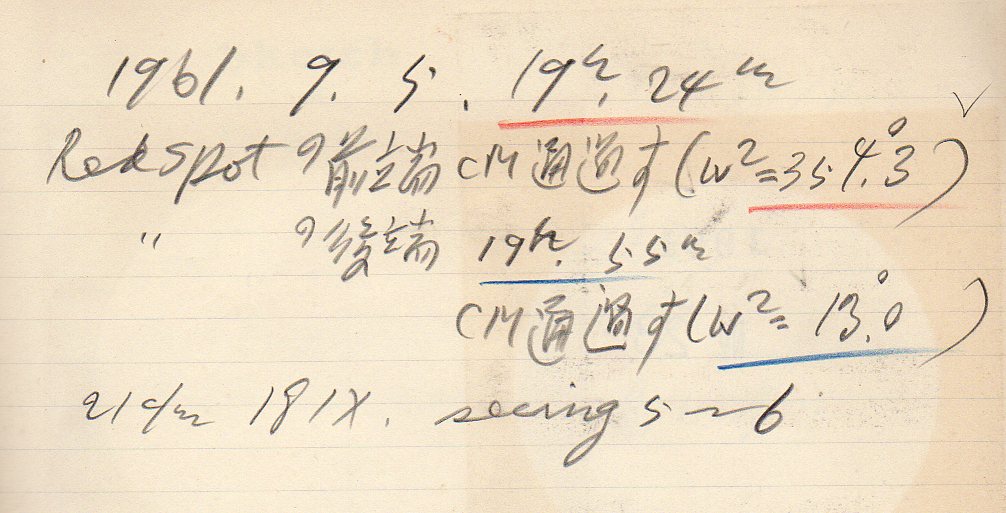 1961. 9. 5. 19h. 24m
Red Spot の前端 CM通過す (ω2=354.°3)
〃 の後端 19h. 55m
CM通過す (ω2= 13.°0)
21cm 181X. seeing 5~6